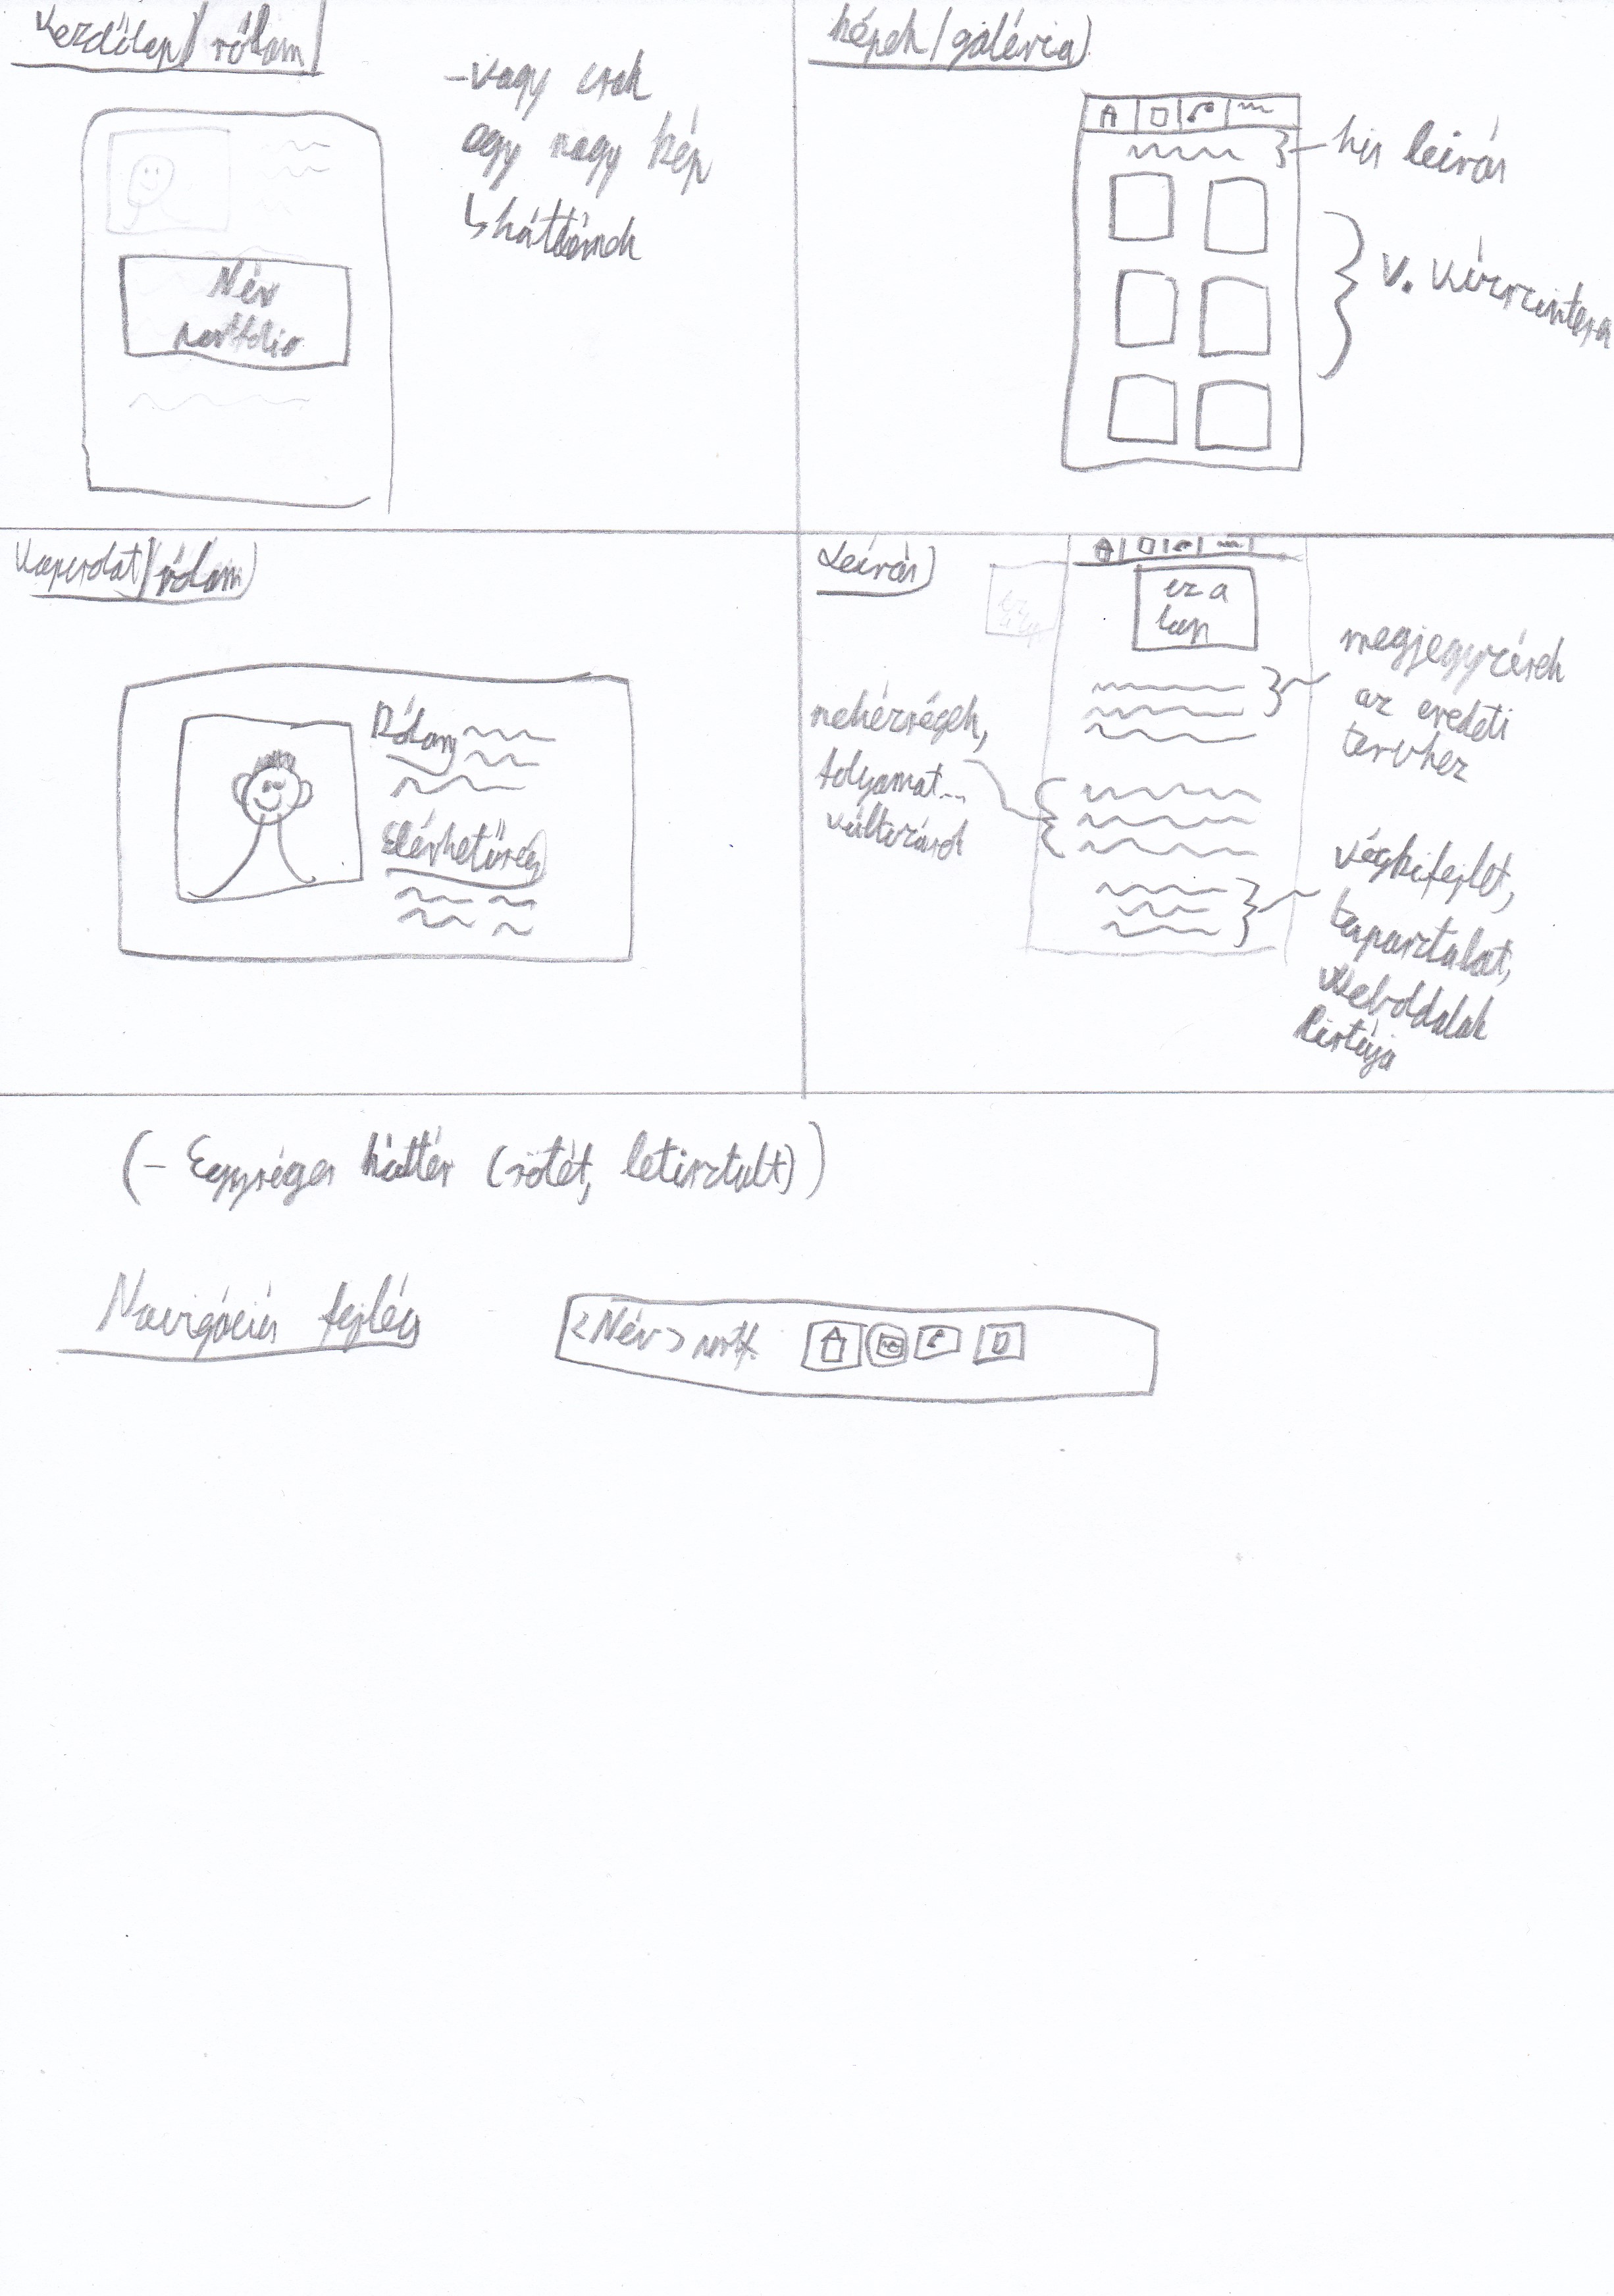 Kezdőlap/rólam
-vagy csak
egy nagy kép
↳háttérnek
Név
portfólió
képek/galéria
kis leírás
v.
Kapcsolat/rólam
Rólam
Elérhetőség
Leírás
ez a
lap
megjegyzések
az eredeti
tervhez
nehézségek,
folyamat...
változások
végkifejlet,
tapasztalat,
weboldalak
listája
(- Egységes háttér (sötét, letisztult))
Navigációs fejléc
<Név> portf.